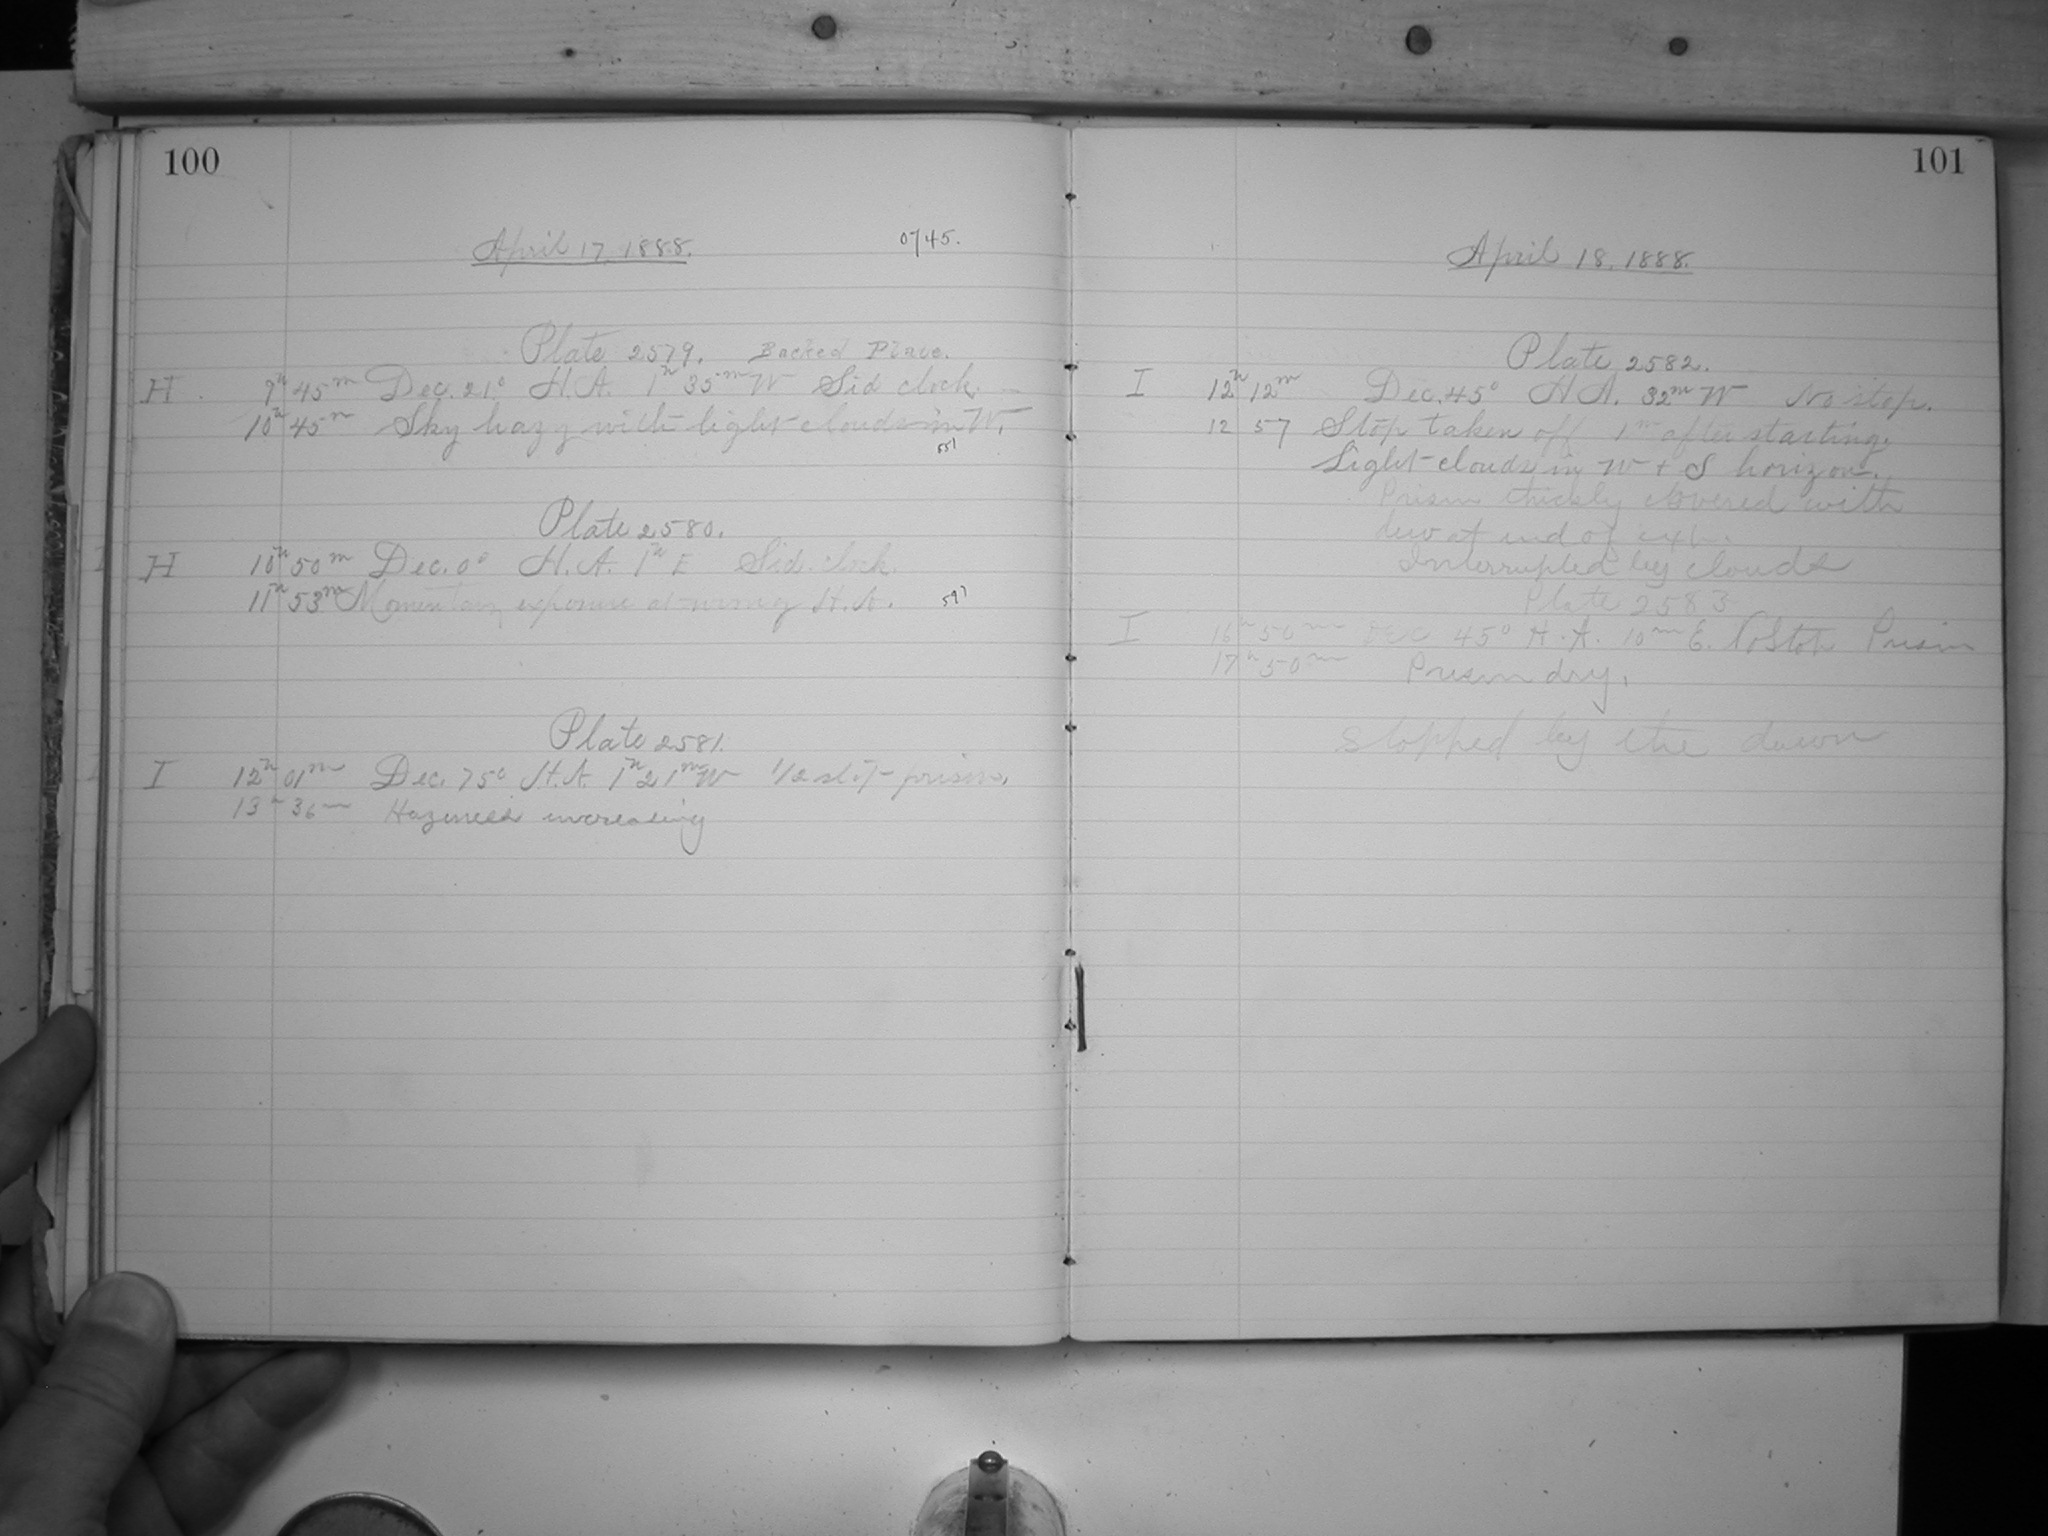 100
April 17, 1888.
0745.
Plate 2579. Backed Plate.
H. 9h 45m Dec. 21° H.A. 1h 35m W Sid clock.
10h 45m Sky hazy with light clouds in W.
Plate 2580.
H 10h 50m Dec. 0° H.A. 1h E Sid. clock.
11h 53m Momentary exposure at wrong H.A.
Plate 2581.
I 12h 01m Dec. 75° H.A. 1h 21m W 1/2 stop prism.
13h 36m Haziness increasing
101
April 18, 1888.
Plate 2582.
I 12h 12m Dec. 45° H A. 32m W No stop.
12 57 Stop taken off 1m after starting.
Light clouds in W + S horizon.
Prism thickly covered with
dew at end of exp.
Interrupted by clouds
Plate 2583
I 16h 50m Dec 45° H.A. 10m E. No Stop Prism
17h 50m Prism dry.
stopped by the dawn